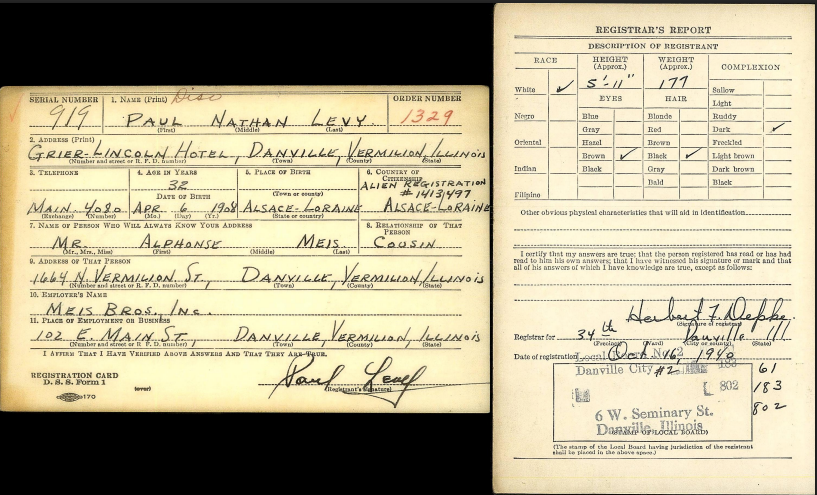 SERIAL NUMBER
919
1. NAME (Print) Disc
ORDER NUMBER
1329
PAUL NATHAN LEVY
(First) (Middle) (Last)
2. ADDRESS (Print)
GRIER-LINCOLN HOTEL, DANVILLE, VERMILION, ILLINOIS
(Number and street or R. F. D. number) (Town) (County) (State)
3. TELEPHONE
4. AGE IN YEARS
5. PLACE OF BIRTH
6. COUNTRY OF CITIZENSHIP
32
ALIEN REGISTRATION
# 1413,497
DATE OF BIRTH
(Town or county)
MAIN 4080 APR. 6 1908 ALSACE-LORAINE ALSACE-LORAINE
(Exchange) (Number) (Mo.) (Day) (Yr.) (State or country)
7. NAME OF PERSON WHO WILL ALWAYS KNOW YOUR ADDRESS
8. RELATIONSHIP OF THAT PERSON
MR. ALPHONSE MEIS COUSIN
(Mr., Mrs., Miss) (First) (Middle) (Last)
9. ADDRESS OF THAT PERSON
1664 N. VERMILION ST., DANVILLE, VERMILION, ILLINOIS
(Number and street or R. F. D. number) (Town) (County) (State)
10. EMPLOYER'S NAME
MEIS BROS., INC.
11. PLACE OF EMPLOYMENT OR BUSINESS
102 E. MAIN ST., DANVILLE, VERMILION, ILLINOIS
(Number and street or R. F. D. number) (Town) (County) (State)
I AFFIRM THAT I HAVE VERIFIED ABOVE ANSWERS AND THAT THEY ARE TRUE.
REGISTRATION CARD
D. S. S. Form 1
(over)
Paul Levy
(Registrant's signature)
170
REGISTRAR'S REPORT
DESCRIPTION OF REGISTRANT
RACE
HEIGHT (Approx.)
WEIGHT (Approx.)
COMPLEXION
White ✓ 5'-11" 177 Sallow
EYES HAIR Light
Negro Blue Blonde Ruddy
Gray Red Dark ✓
Oriental Hazel Brown Freckled
Brown ✓ Black ✓ Light brown
Indian Black Gray Dark brown
Bald Black
Filipino
Other obvious physical characteristics that will aid in identification
I certify that my answers are true; that the person registered has read or has had
read to him his own answers; that I have witnessed his signature or mark and that
all of his answers of which I have knowledge are true, except as follows:
Herbert F. Depke
(Signature of registrar)
Registrar for 34th Danville Ill
(Precinct) (Ward) (City or county) (State)
Date of registration Oct. 16, 1940
Local No. 2
Danville City #2 183
61
802
183
802
6 W. Seminary St.
Danville, Illinois
(STAMP OF LOCAL BOARD)
(The stamp of the Local Board having jurisdiction of the registrant
shall be placed in the above space.)